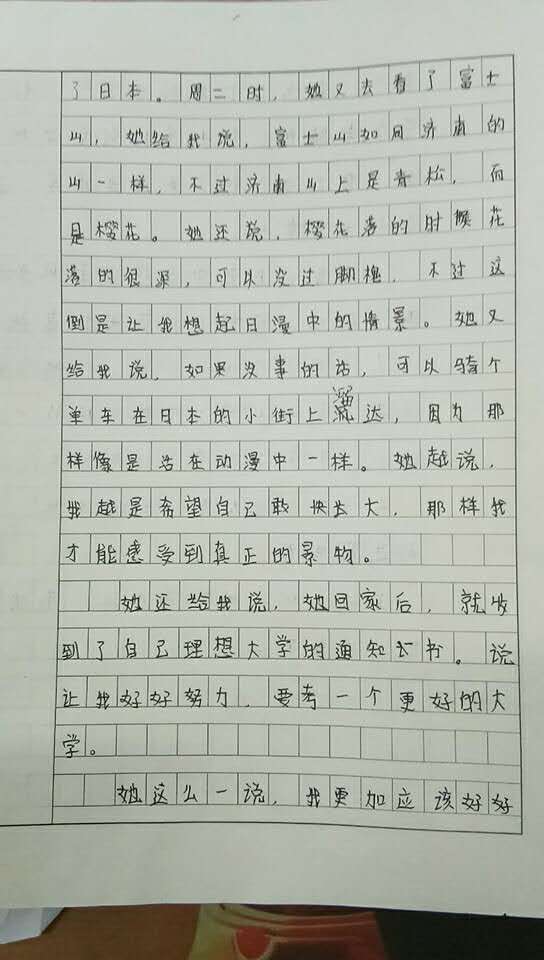 了日本。周二时，她又去看了富士
山，她给我说，富士山如同济南的
山一样，不过济南山上是青松，而
是樱花。她还说，樱花落的时候花
落的很深，可以没过脚槐，不过这
倒是让我想起日漫中的情景。她又
给我说，如果没事的话，可以骑个
单车在日本的小街上溜达，因为那
样像是活在动漫中一样。她越说，
我越是希望自己敢快长大，那样我
才能感受到真正的景物。
她还给我说，她回家后，就收
到了自己理想大学的通知书。说
让我好好努力，要考一个更好的大
学。
她这么一说，我更加应该好好